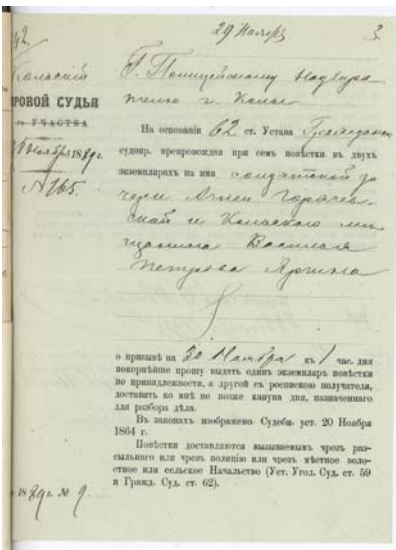 29 Ноября 3.
42.
Кольскій
МИРОВОЙ СУДЬЯ
УЧАСТКА
Ноября 1889 г.
№ 165
Г. Полицейскому Надзира-
телю г. Колы
На основаніи 62 ст. Устава Гражданск.
судопр. препровождая при семъ повѣстки въ двухъ
экземплярахъ на имя солдатской до
чери
ской и Кольскаго мѣ-
щанина Василия
Петрова
о призывѣ на 30 Ноября къ 1 час. дня
покорнѣйше прошу выдать одинъ экземпляръ повѣстки
по принадлежности, а другой съ роспискою получателя,
доставить ко мнѣ не позже кануна дня, назначеннаго
для разбора дѣла.
Въ законахъ изображено Судебн. уст. 20 Ноября
1864 г.
Повѣстки доставляются вызываемымъ чрезъ раз-
сыльнаго или чрезъ полицію или чрезъ мѣстное воло-
стное или сельское Начальство (Уст. Угол. Суд. ст. 59
и Гражд. Суд. ст. 62).
1889 г. № 9.